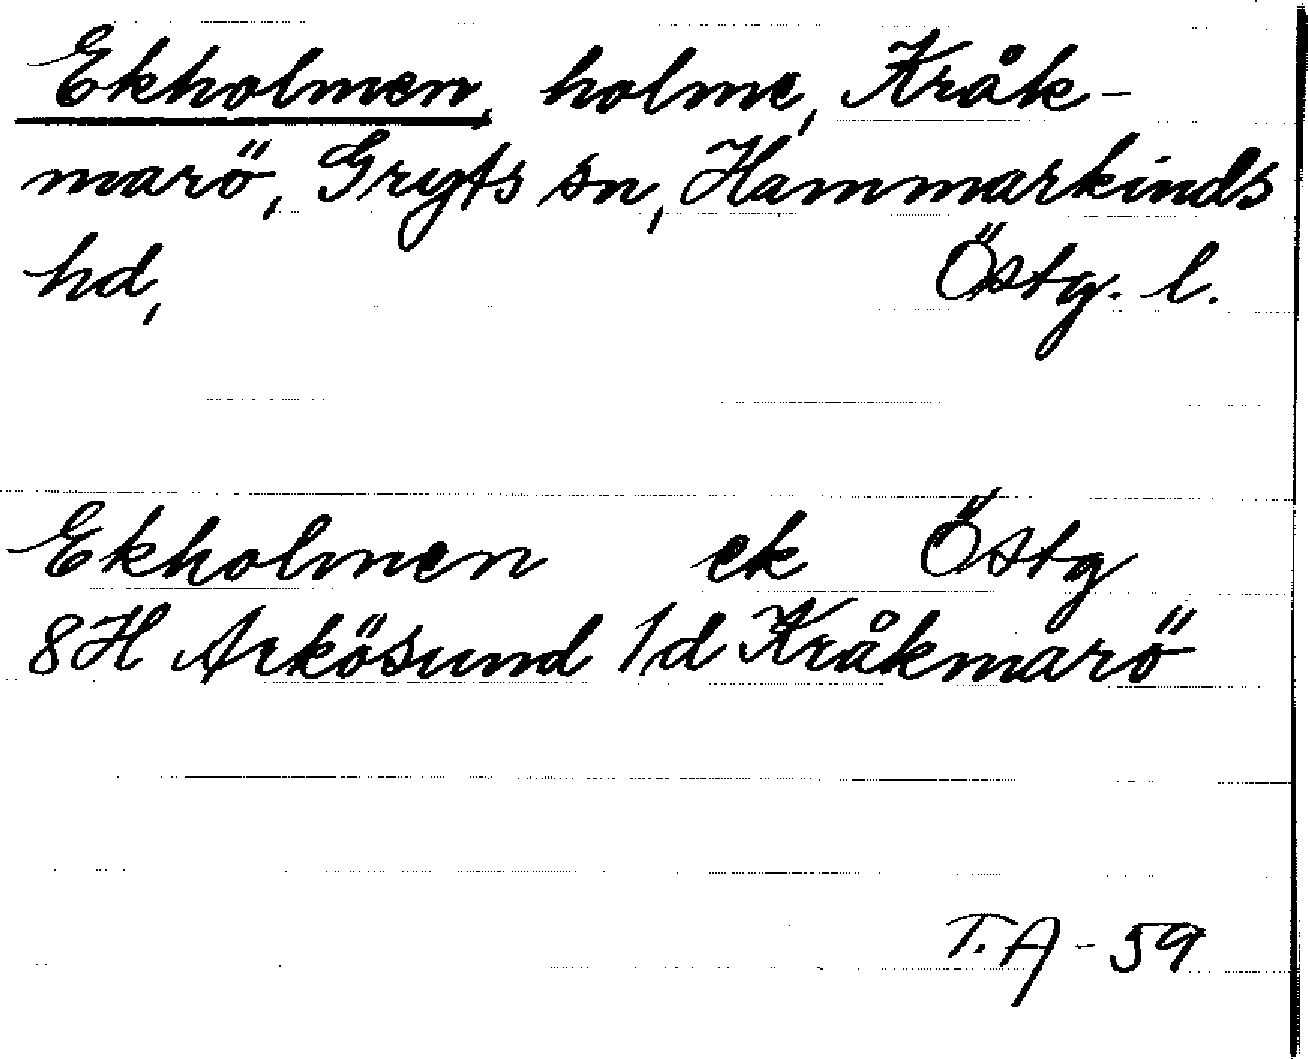 Ekholmen, holme, Kråk-
marö, Gryts sn, Hammarkinds
hd, Östg. l.
Ekholmen ek Östg
8H Arkösund 1d Kråkmarö
T.A - 59